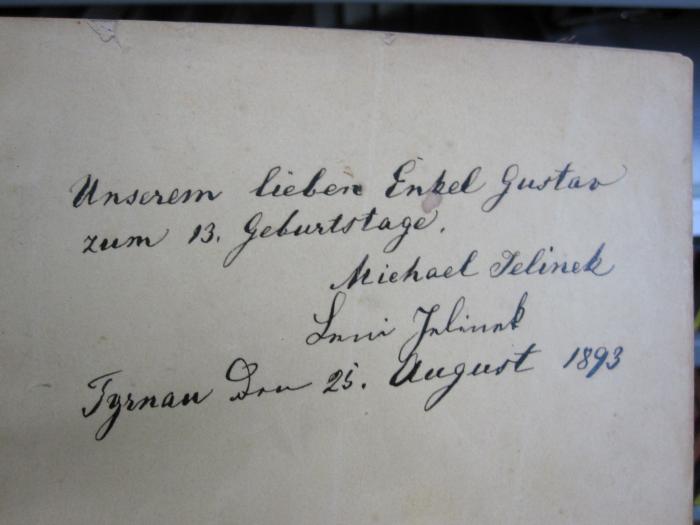 Unserem lieben Enkel Gustav
zum 13. Geburtstage.
Michael Jelinek
Leni Jelinek
Tyrnau Den 25. August 1893